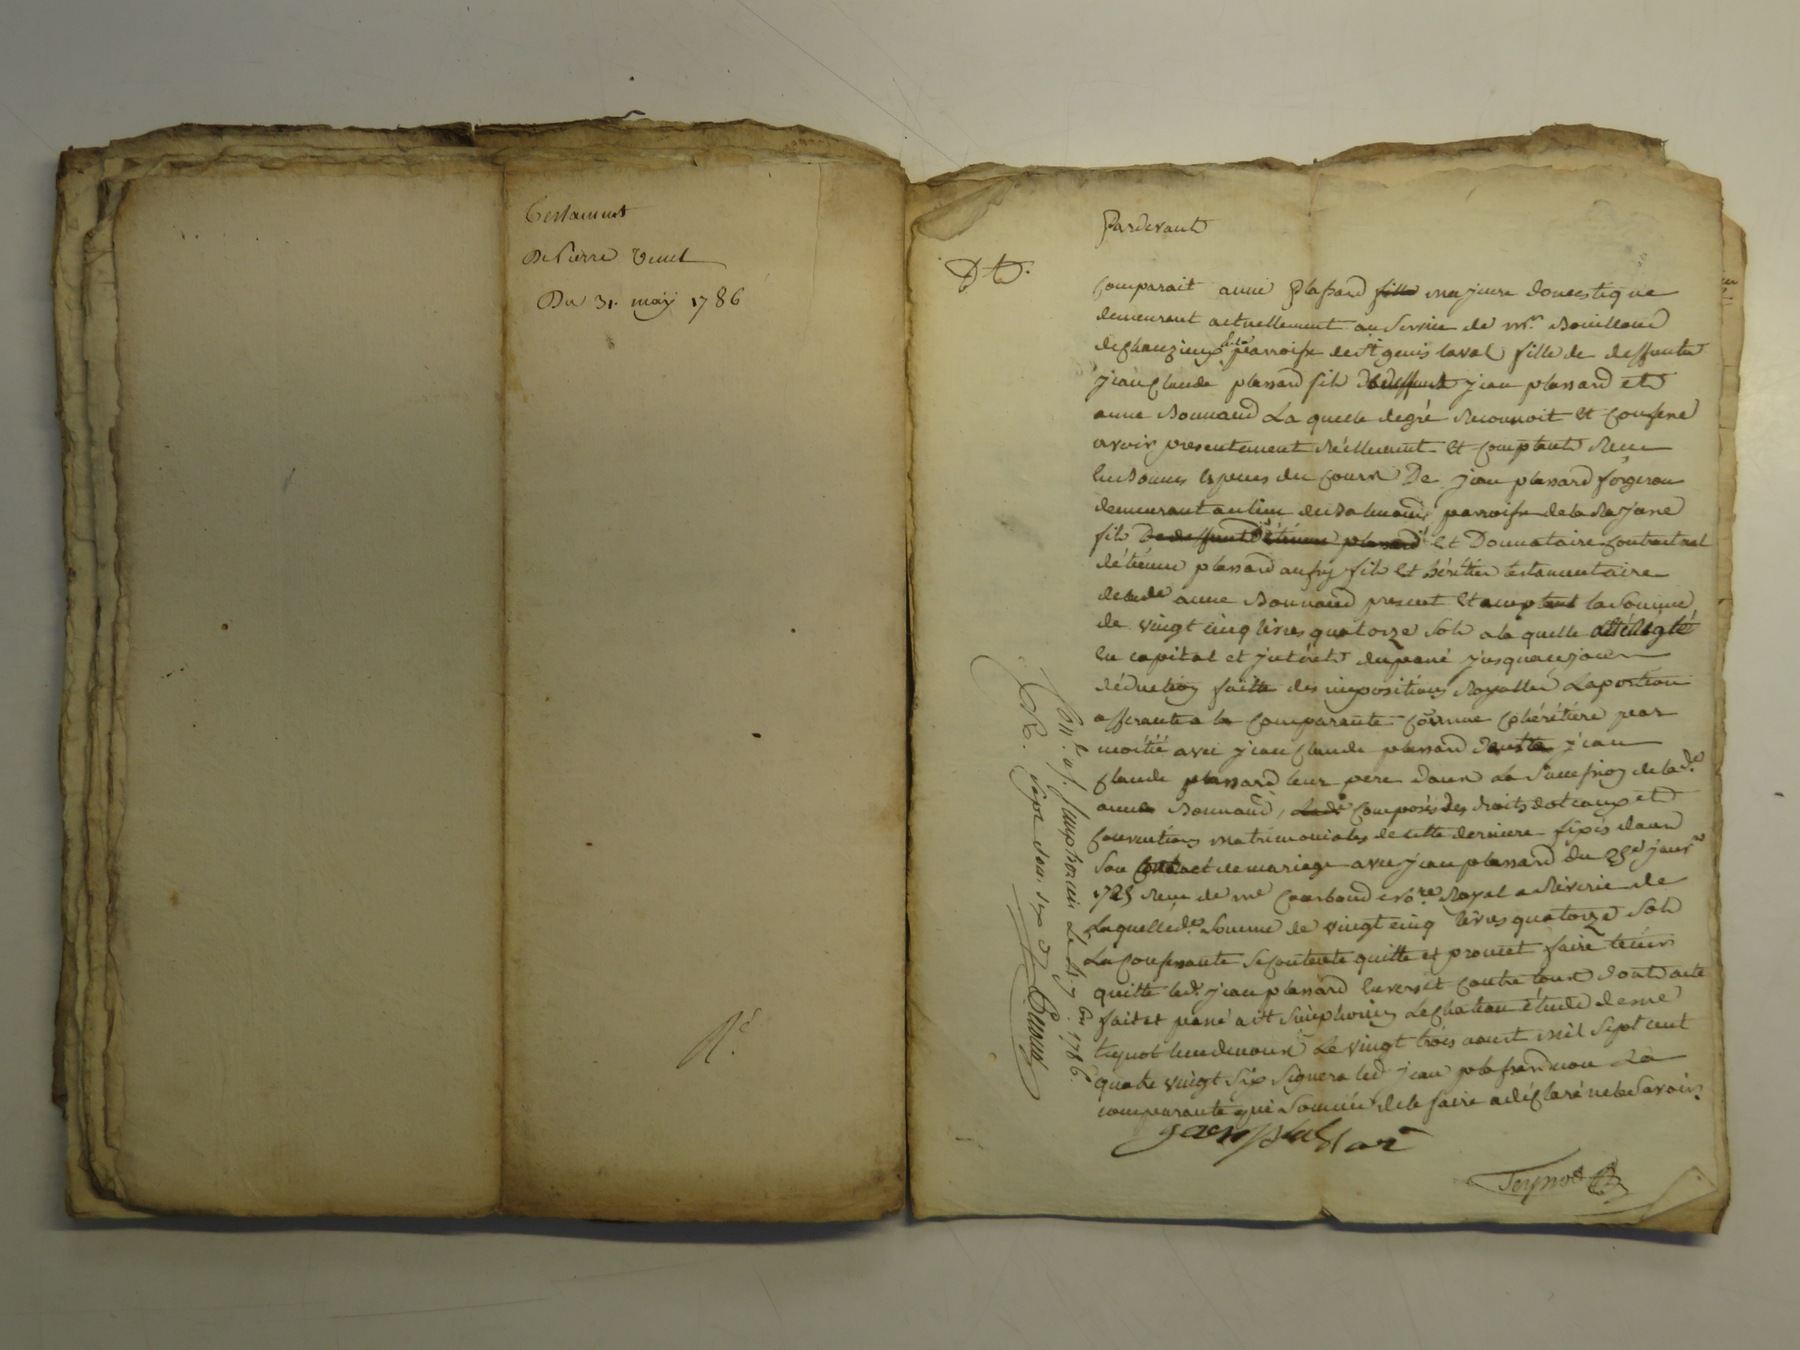 Testament
De Pierre Venet
Du 31. may 1786
Pardevant
comparait anne plassard fille majeure domestique
demeurant actuellement au service de mr. Bouilloud
de chanzieux parroisse de st genis laval fille de deffunts
jean claude plassard fils de deffunt jean plassard et
anne Bonnand La quelle de gré Reconnoit et confesse
avoir presentement réellement et comptant Reçu
en Bonnes especes du cours De jean plassard forgeron
demeurant au lieu du parroisse de la Rajasse
fils de deffunt d'étienne plassard et Donnataire contractuel
détienne plassard aussy fils et héritier testamentaire
de lade anne Bonnand present et acceptant la somme
de vingt cinq livres quatorze sols a la quelle a été Réglé
en capital et intérêts du passé jusqu'a ce jour
déduction faitte des impositions Royalles La portion
afferante a la comparante comme cohéritiere par
moitié avec jean claude plassard jean
claude plassard leur pere dans la succession de lade.
anne Bonnand, lade composée des droits doteaux et
conventions matrimoniales de cette derniere fixés dans
son contract de mariage avec jean plassard du 25e janvr
1725 Reçu de me nore. Royal a Riverie de
Laquelle de. somme de vingt cinq livres quatorze sols
La confessante se contente quitte et promet faire tenir
quitte led. jean plassard envers et contre tous dont acte
fait et passé a st simphorien Le chateau étude de me
teynot l'un de nous Le vingt trois aoust mil sept cent
quatre vingt six signera led jean plassard non La
comparante qui sommée de le faire a déclaré ne le savoir.
jean plassar
Teynot
Con.lé a st. simphorien Le 4. 7bre 1786.
R. quinze sous